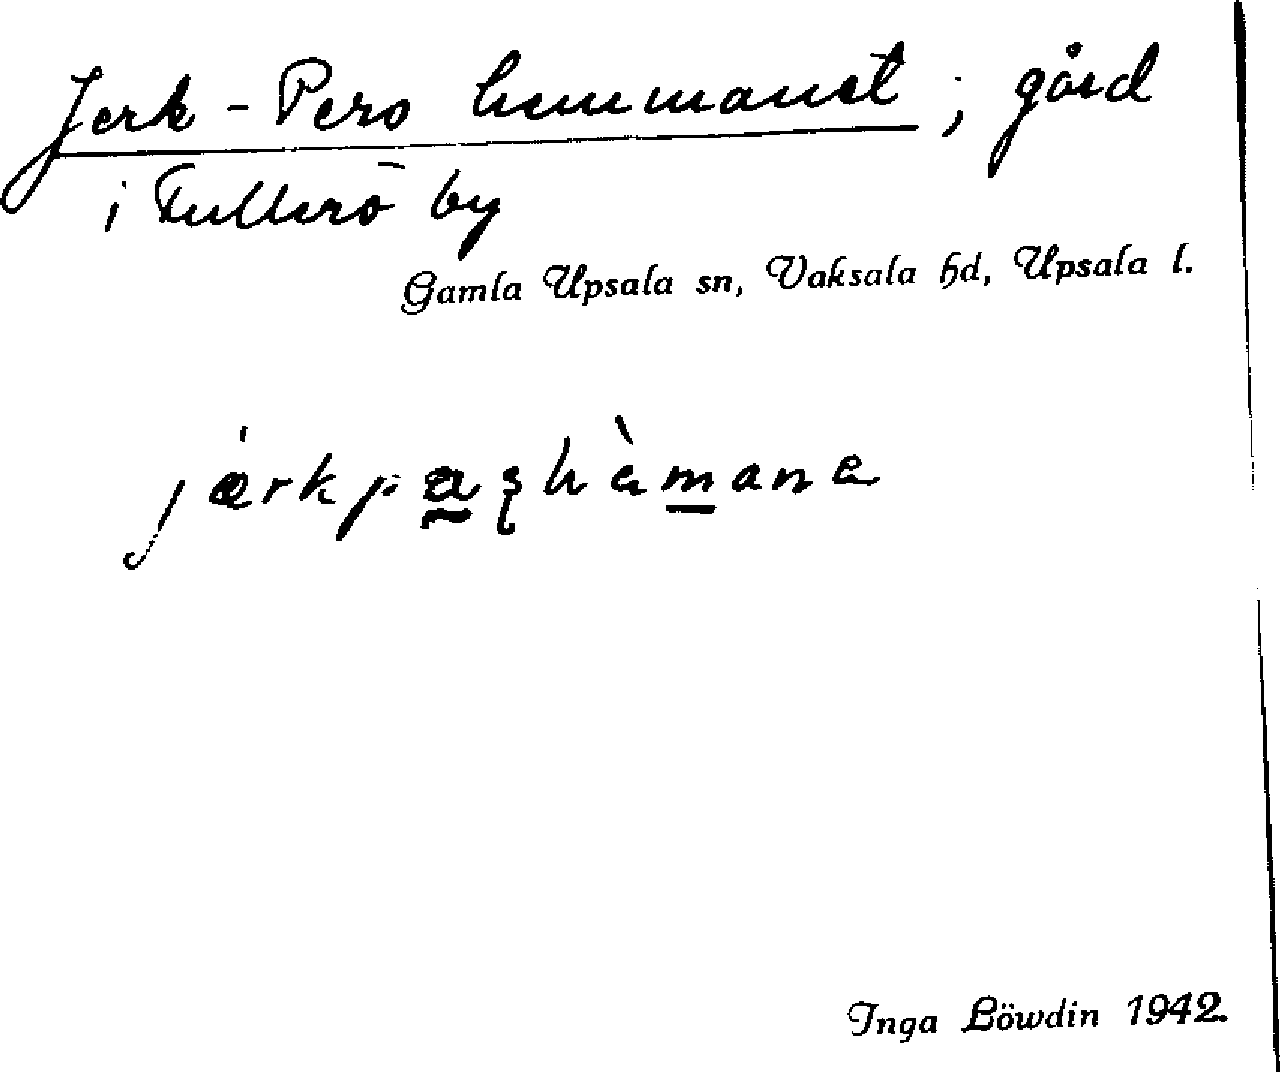 Jerk-Pers hemmanet; gård
i Fullerö by
Gamla Upsala sn, Vaksala hd, Upsala l.
Inga Löwdin 1942.